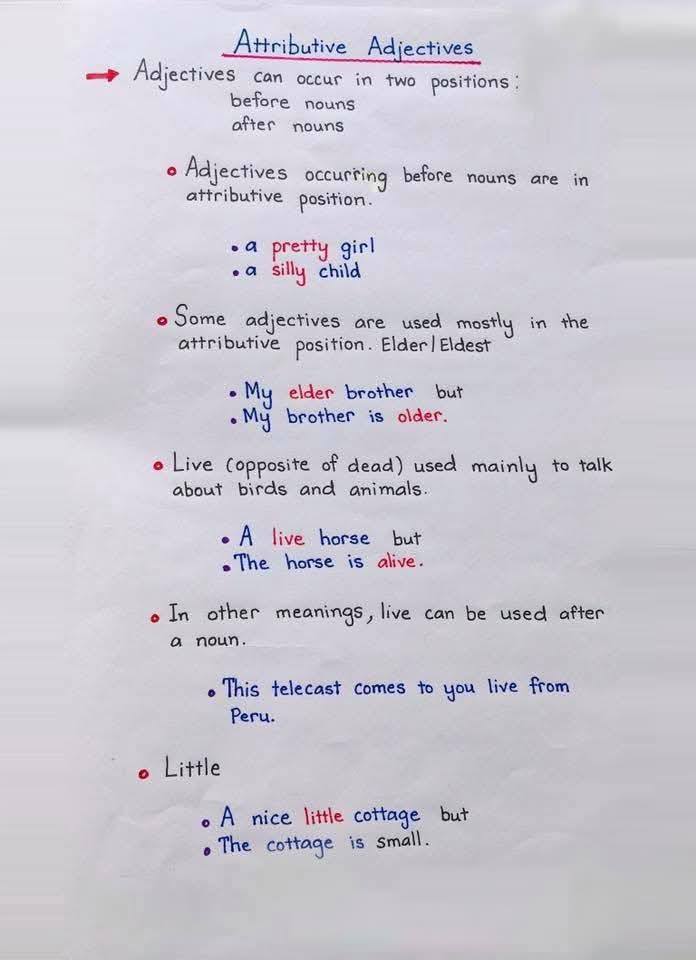 Attributive Adjectives
→ Adjectives can occur in two positions:
before nouns
after nouns
• Adjectives occurring before nouns are in
attributive position.
• a pretty girl
• a silly child
• Some adjectives are used mostly in the
attributive position. Elder/Eldest
• My elder brother but
• My brother is older.
• Live (opposite of dead) used mainly to talk
about birds and animals.
• A live horse but
• The horse is alive.
• In other meanings, live can be used after
a noun.
• This telecast comes to you live from
Peru.
• Little
• A nice little cottage but
• The cottage is small.